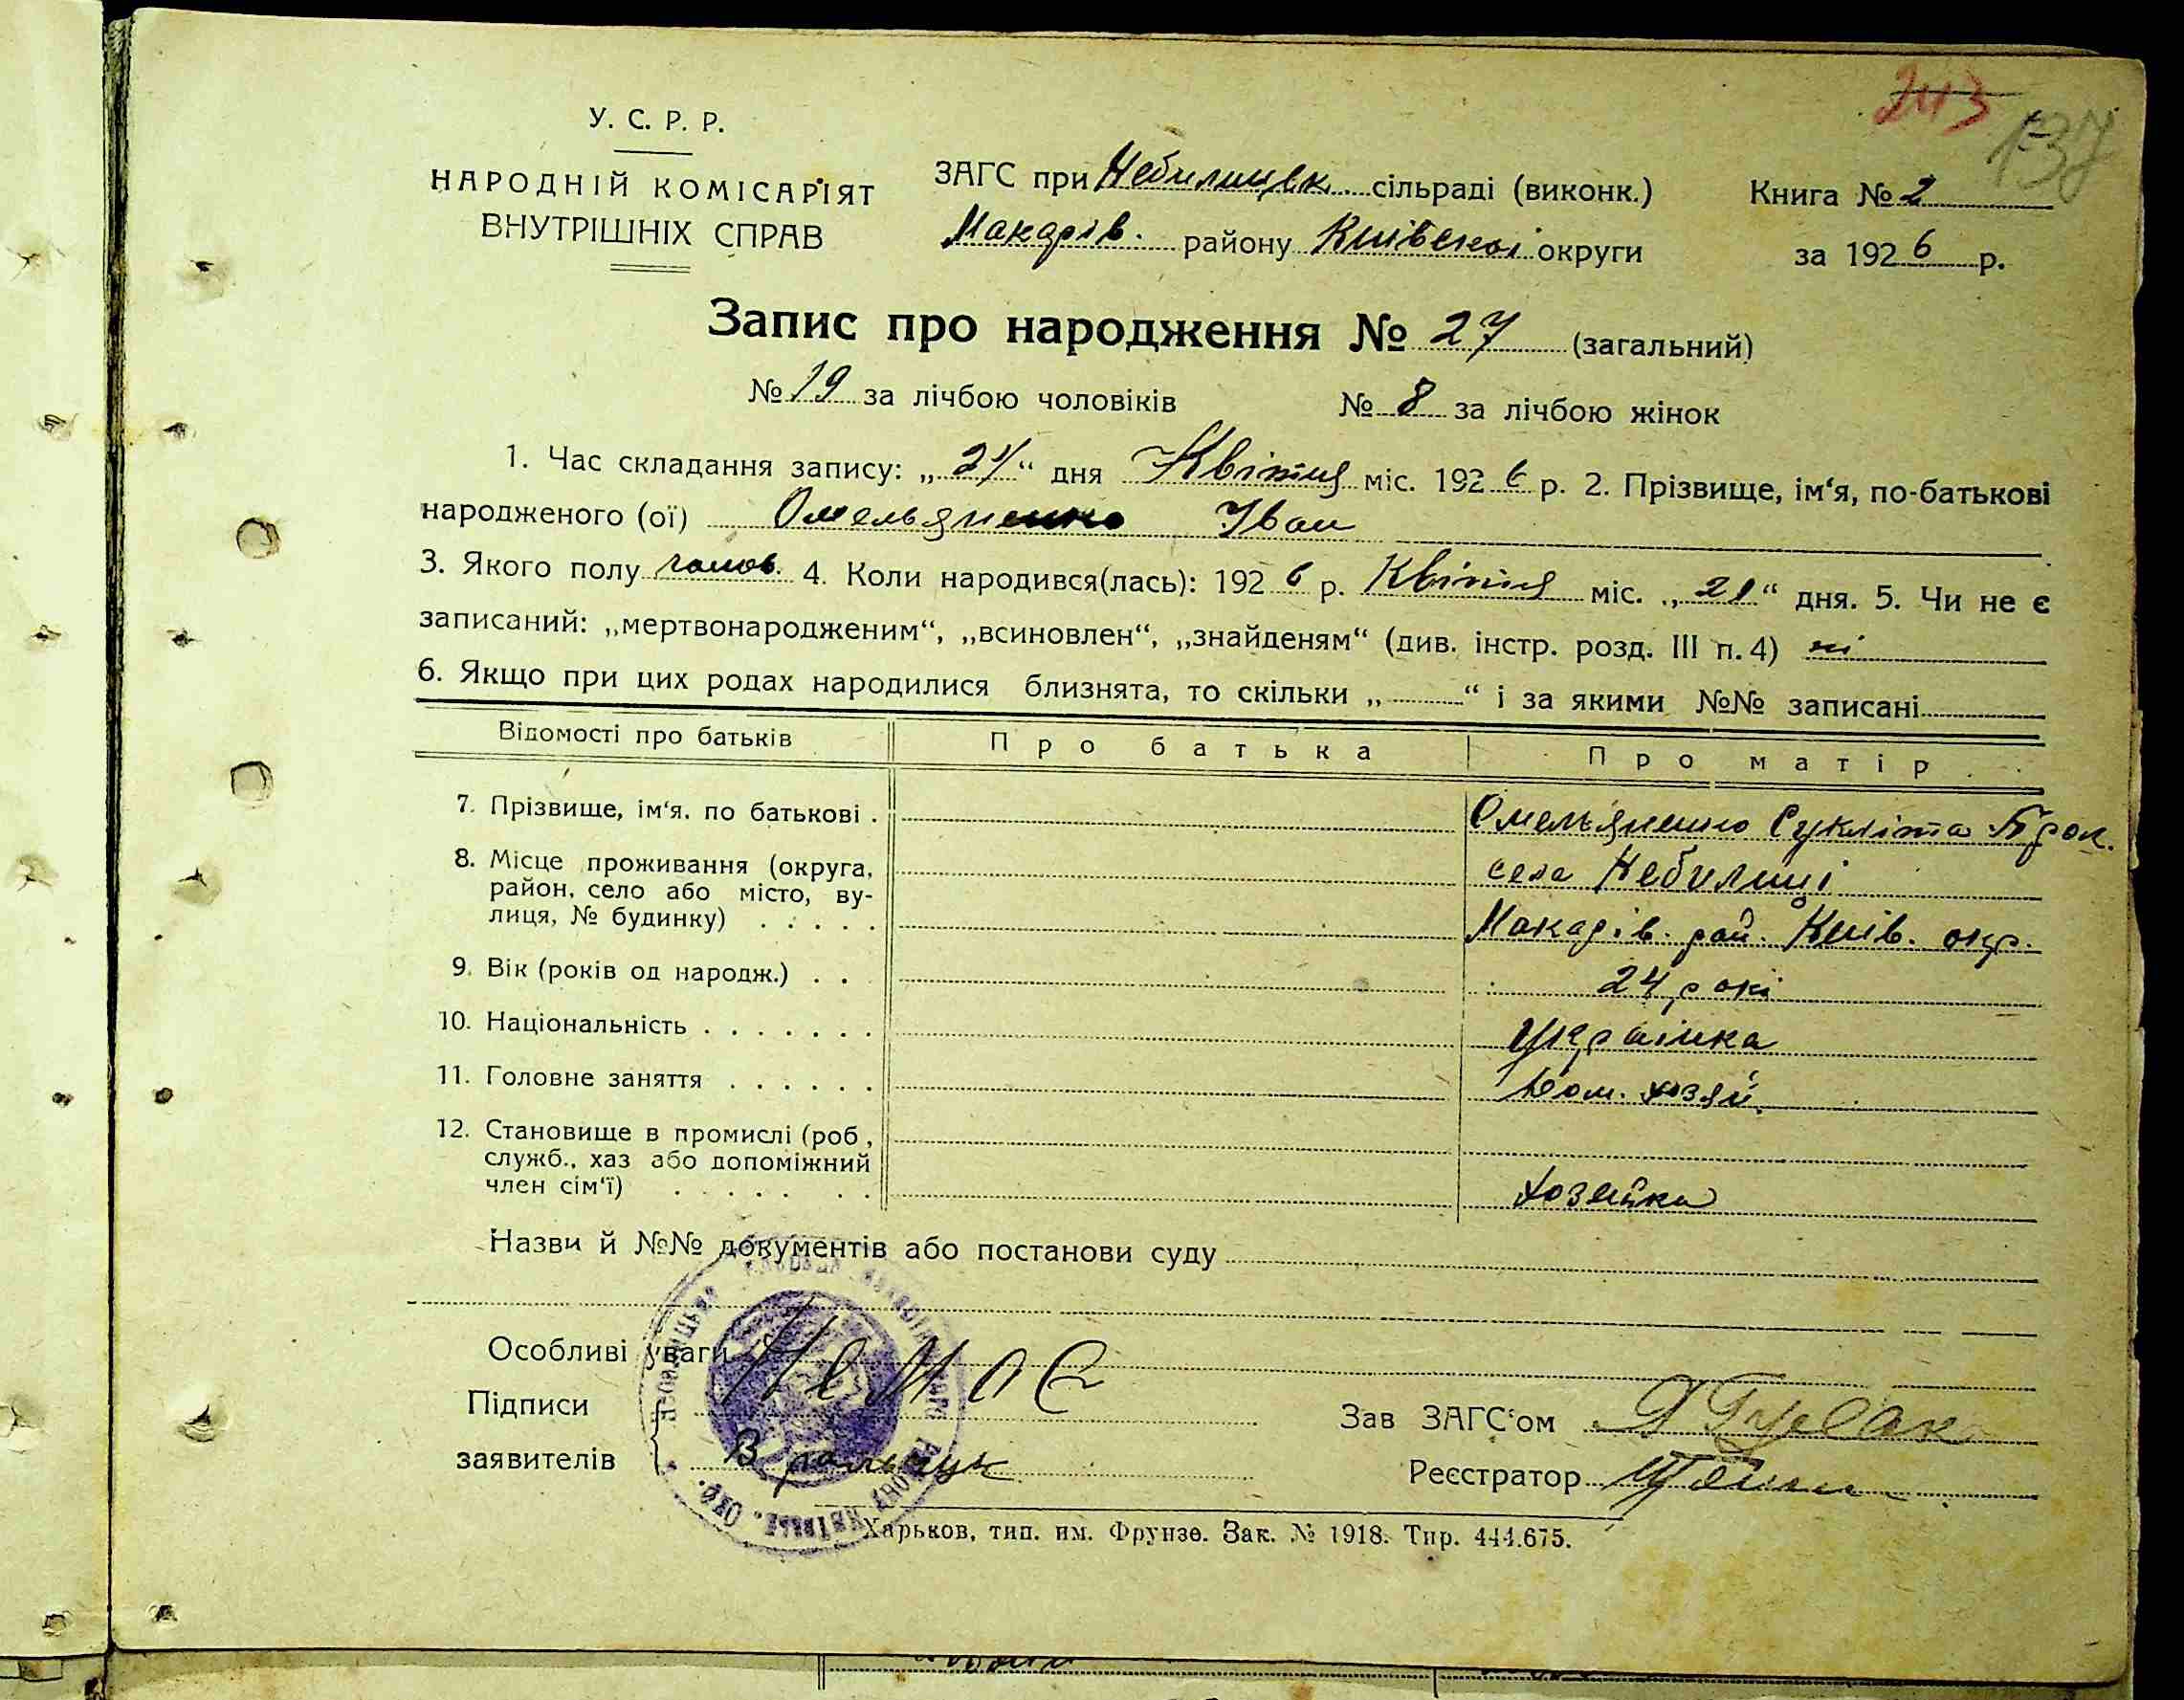 243 137
У. С. Р. Р.
НАРОДНІЙ КОМІСАРІЯТ
ВНУТРІШНІХ СПРАВ
ЗАГС при Небилицьк. сільраді (виконк.)
Макарів. району Київської округи
Книга № 2
за 1926 р.
Запис про народження № 27 (загальний)
№ 19 за лічбою чоловіків № 8 за лічбою жінок
1. Час складання запису: „24“ дня Квітня міс. 1926 р. 2. Прізвище, ім‘я, по-батькові
народженого (ої) Омельяненко Іван
3. Якого полу чолов. 4. Коли народився(лась): 1926 р. Квітня міс. „21“ дня. 5. Чи не є
записаний: „мертвонародженим“, „всиновлен“, „знайденям“ (див. інстр. розд. III п. 4) ні
6. Якщо при цих родах народилися близнята, то скільки „ “ і за якими №№ записані
Відомості про батьків Про батька Про матір
7. Прізвище, ім‘я. по батькові . Омельяненко
8. Місце проживання (округа, села Небилиці
район, село або місто, ву-
лиця, № будинку) . . . . . Макарів. рай. Київ. окр.
9. Вік (років од народж.) . . 24 рокі
10. Національність . . . . . . . Українка
11. Головне заняття . . . . . . Дом. хозяй.
12. Становище в промислі (роб,
служб., хаз або допоміжний
член сім‘ї) . . . . . . Хозяйка
Назви й №№ документів або постанови суду
Особливі уваги Немає
Підписи
заявителів
Зав ЗАГС‘ом
Реєстратор
Харьков, тип. им. Фрунзе. Зак. № 1918. Тир. 444.675.